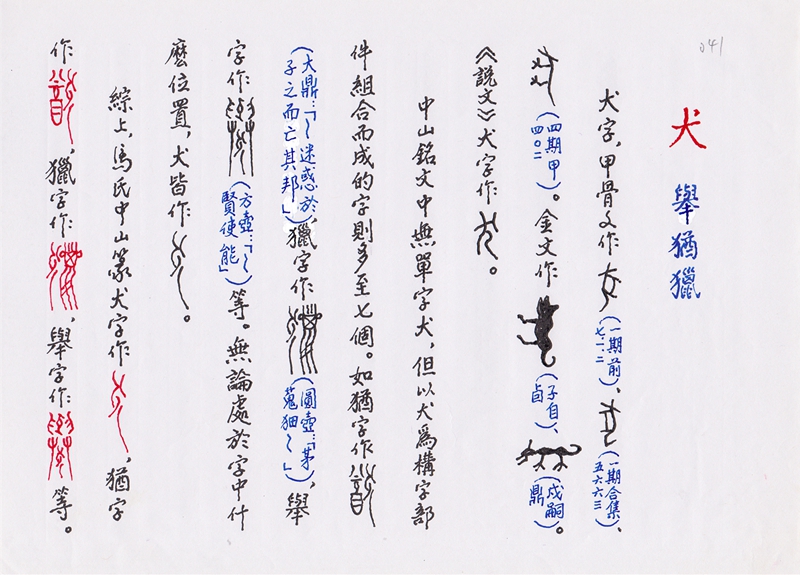 041
犬 舉猶獵
犬字，甲骨文作（一期前七一.二）、（一期合集五六六三）、
（四期甲四〇二）。金文作（子自、卣）、（戍嗣鼎）。
《說文》犬字作。
中山銘文中無單字犬，但以犬爲構字部
件組合而成的字則多至七個。如猶字作
（大鼎：「～迷惑於子之而亡其邦」），獵字作（圓壺：「茅蒐～」），舉
字作（方壺：「～賢使能」）等。無論處於字中什
麼位置，犬皆作。
綜上，馮氏中山篆犬字作，猶字
作，獵字作，舉字作等。